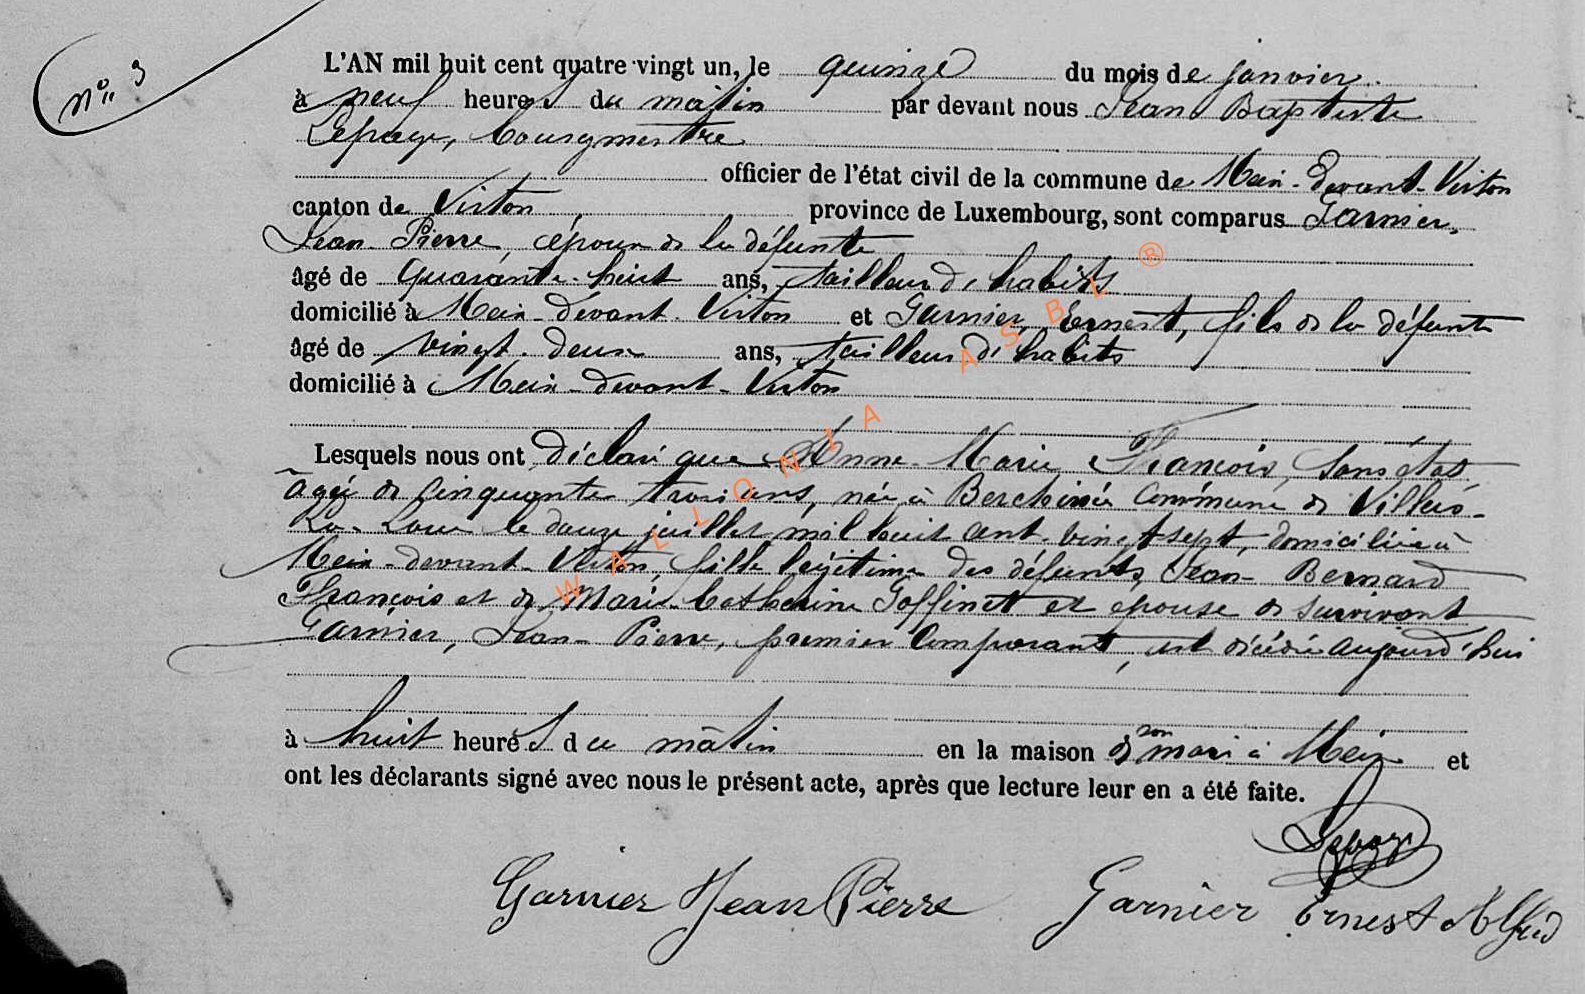 N° 3
L'AN mil huit cent quatre-vingt un, le quinze du mois de janvier.
à neuf heures du matin par devant nous Jean Baptiste
Lepage, bourgmestre
officier de l'état civil de la commune de Meix-devant-Virton
canton de Virton province de Luxembourg, sont comparus Garnier,
Jean-Pierre, époux de la défunte
âgé de quarante-huit ans, tailleur d'habits
domicilié à Meix-devant-Virton et Garnier, Ernest, fils de la défunte
âgé de vingt-deux ans, tailleur d'habits
domicilié à Meix-devant-Virton
Lesquels nous ont déclaré que Anne-Marie François, sans état
âgée de cinquante trois ans, née à Berchiwée commune de Villers-
La-Loue le douze juillet mil huit cent vingt sept, domiciliée à
Meix-devant-Virton, fille légitime des défunts Jean-Bernard
François et de Marie-Catherine Goffinet et épouse de survivant
Garnier, Jean-Pierre, premier comparant, est décédée aujourd'hui
à huit heures du matin en la maison de son mari à Meix et
ont les déclarants signé avec nous le présent acte, après que lecture leur en a été faite.
Lepage
Garnier Jean Pierre Garnier Ernest Alfred
WALLONIA ASBL ®